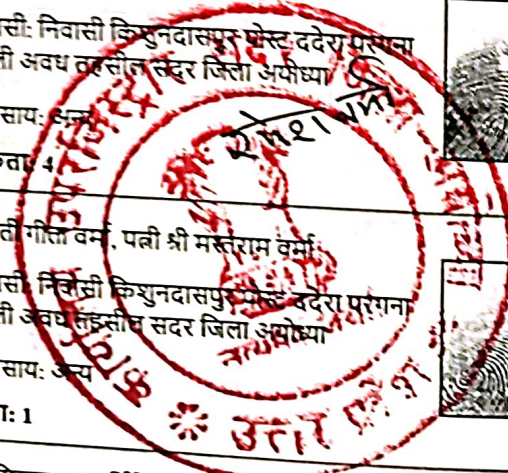 सी: निवासी किशुनदासपुर पोस्ट ददेरा परगना
ी अवध तहसील सदर जिला अयोध्या
रमेश वर्मा
साय: अन्य
ता: 4
ती गीता वर्मा, पत्नी श्री मस्तराम वर्मा
सी: निवासी किशुनदासपुर पोस्ट ददेरा परगना
ी अवध तहसील सदर जिला अयोध्या
साय: अन्य
ा: 1
उत्तर प्रदेश